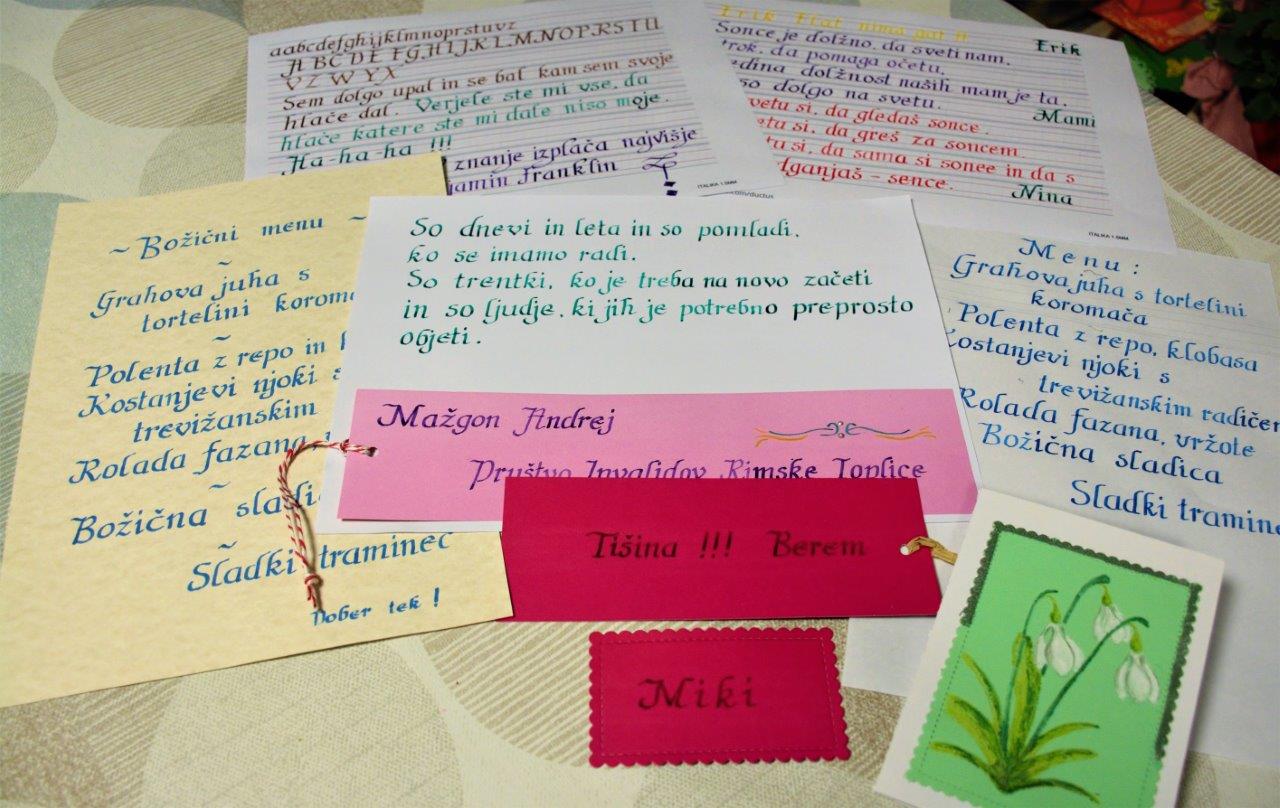 aabcdefghijklmnoprstuvz
A BC DE FGHIJKLMNOPRSTU
VZ W Y X
Sem dolgo upal in se bal kam sem svoje
hlače dal. Verjele ste mi vse, da
hlače katere ste mi dale niso moje.
Ha-ha-ha !!!
znanje izplača najvišje
jamin Franklin
ITALIKA 1.5MM
.com/ductus
Erik Flat nima gat !!
Erik
Sonce je dolžno, da sveti nam,
trok, da pomaga očetu,
edina dolžnost naših mam je ta,
so dolgo na svetu.
Mami
vetu si, da gledaš sonce.
etu si, da greš za soncem.
tu si, da sama si sonce in da s
dganjaš - sence.
Nina
ITALIKA 1.5MM
~ Božični menu ~
~
Grahova juha s
tortelini koroma
~
Polenta z repo in k
Kostanjevi njoki s
trevižanskim
Rolada fazana
~
Božična sladi
~
Sladki traminec
Dober tek !
So dnevi in leta in so pomladi,
ko se imamo radi.
So trentki, ko je treba na novo začeti
in so ljudje, ki jih je potrebno preprosto
objeti.
Mažgon Andrej
Društvo Invalidov Rimske Toplice
Tišina !!! Berem
Miki
Menu :
Grahova juha s tortelini
koromača
Polenta z repo, klobasa
Kostanjevi njoki s
trevižanskim radičem
Rolada fazana, vržote
Božična sladica
Sladki tramine